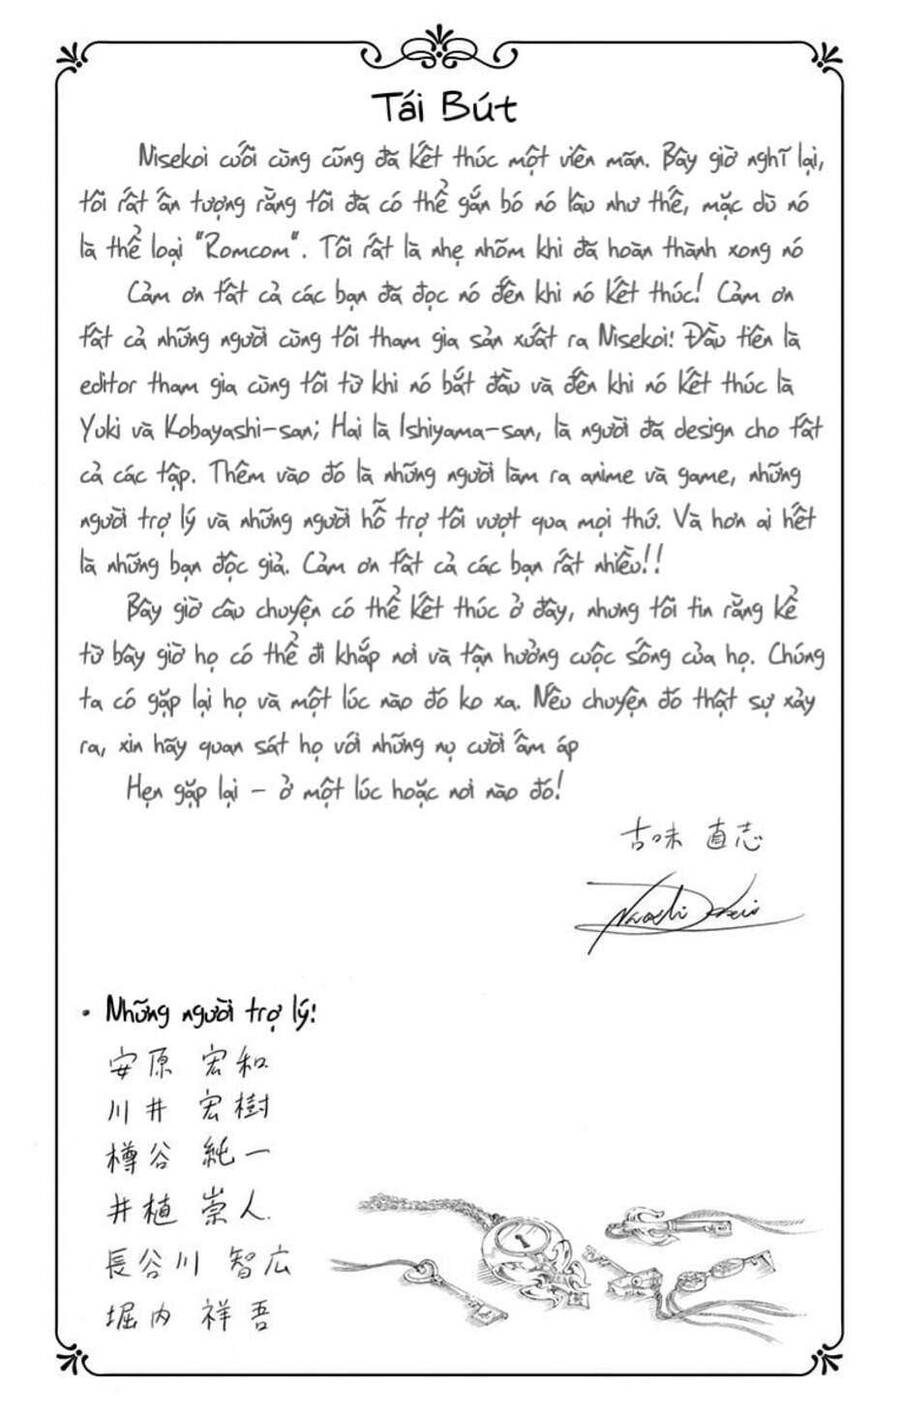 Tái Bút
Nisekoi cuối cùng cũng đã kết thúc một viên mãn. Bây giờ nghĩ lại,
tôi rất ấn tượng rằng tôi đã có thể gắn bó nó lâu như thế, mặc dù nó
là thể loại "Romcom". Tôi rất là nhẹ nhõm khi đã hoàn thành xong nó
Cảm ơn tất cả các bạn đã đọc nó đến khi nó kết thúc! Cảm ơn
tất cả những người cùng tôi tham gia sản xuất ra Nisekoi! Đầu tiên là
editor tham gia cùng tôi từ khi nó bắt đầu và đến khi nó kết thúc là
Yuki và Kobayashi-san; Hai là Ishiyama-san, là người đã design cho tất
cả các tập. Thêm vào đó là những người làm ra anime và game, những
người trợ lý và những người hỗ trợ tôi vượt qua mọi thứ. Và hơn ai hết
là những bạn độc giả. Cảm ơn tất cả các bạn rất nhiều!!
Bây giờ câu chuyện có thể kết thúc ở đây, nhưng tôi tin rằng kể
từ bây giờ họ có thể đi khắp nơi và tận hưởng cuộc sống của họ. Chúng
ta có gặp lại họ và một lúc nào đó ko xa. Nếu chuyện đó thật sự xảy
ra, xin hãy quan sát họ với những nụ cười ấm áp
Hẹn gặp lại - ở một lúc hoặc nơi nào đó!
古味 直志
Naoshi Komi
• Những người trợ lý:
安原 宏和
川井 宏樹
樽谷 純一
井植 崇人
長谷川 智広
堀内 祥吾